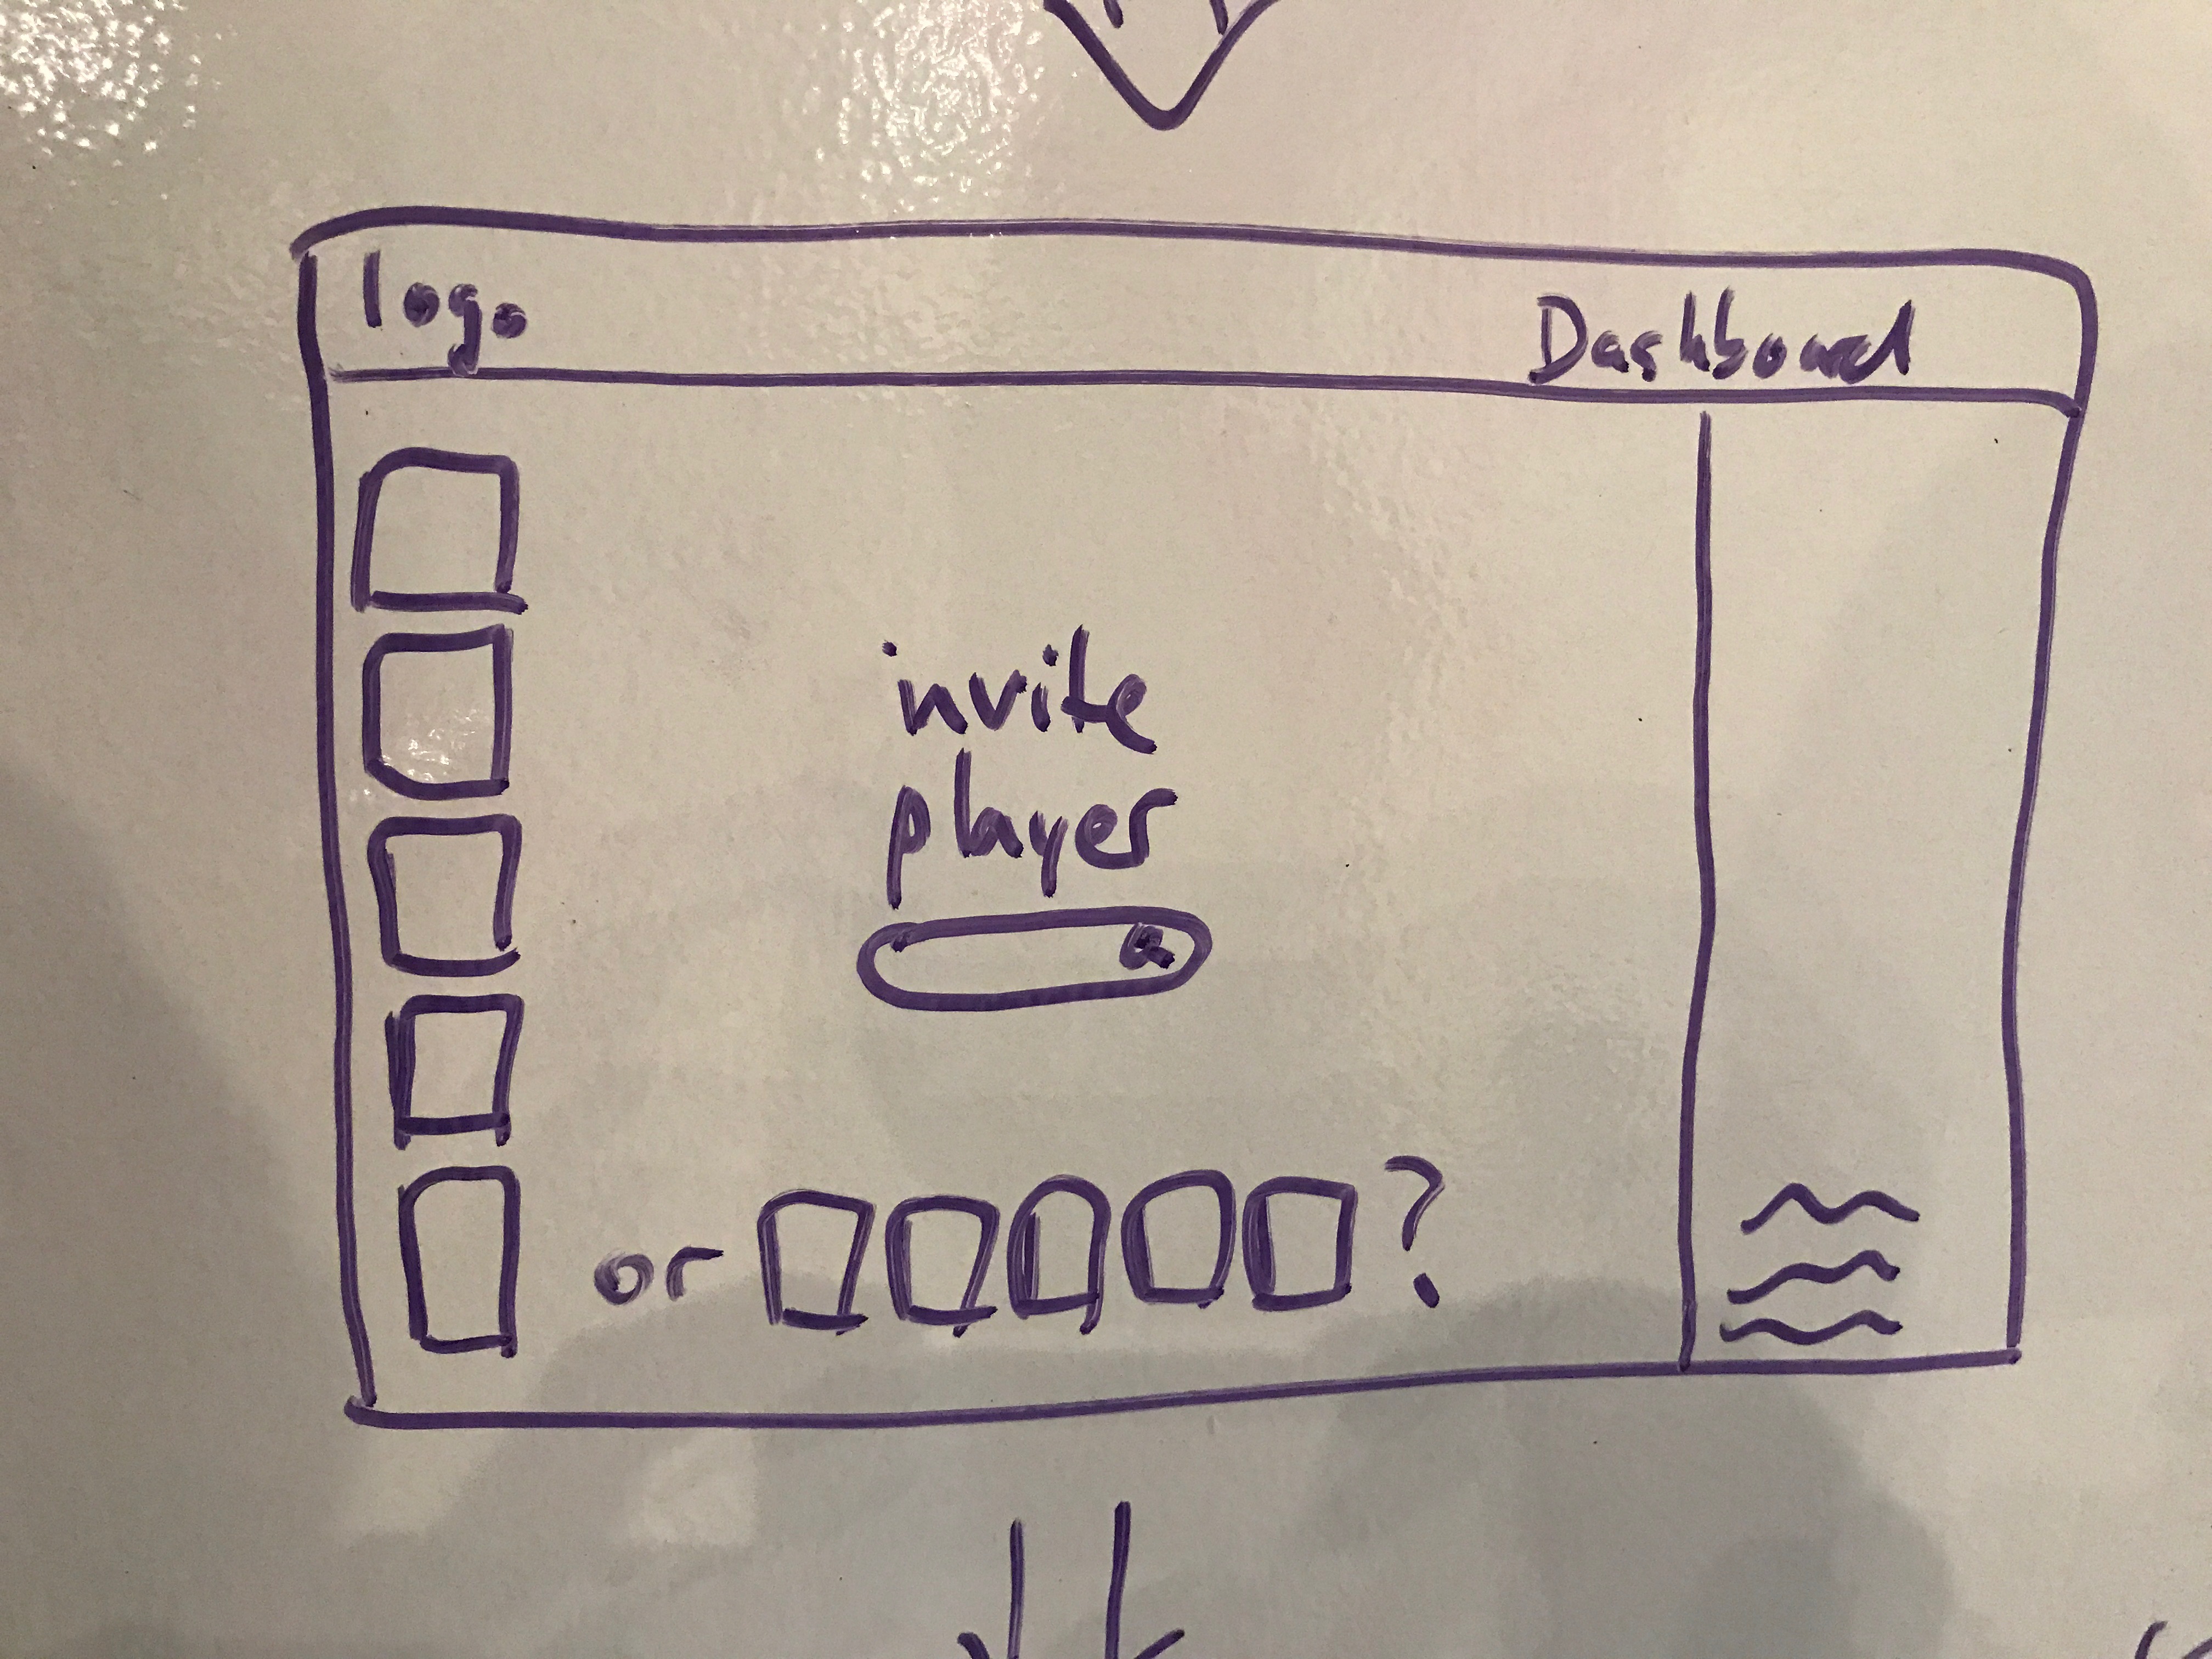 logo
Dashboard
invite
player
or ?